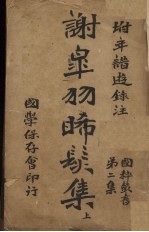 坿年譜遊錄注
國粹叢書
第二集
謝皐羽晞髮集 上
國學保存會印行